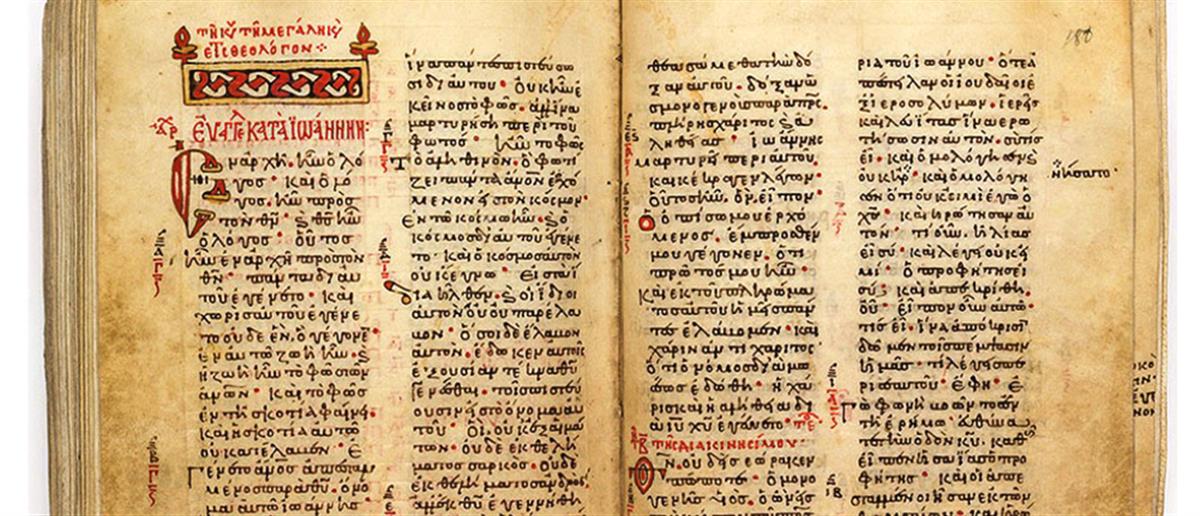 τῇ κυ τῇ μεγάλη κυ
θεολόγον
ΕΥΑΓΓΕ ΚΑΤΑ ἸΩΑΝΝΗΝ
Ἐν ἀρχῆ. ἦν ὁ λό
γος· καὶ ὁ λό
γος. ἦν πρὸς
τὸν θν· ϗ θς ἦν
ὁ λόγος· οὗτος
ἦν ἐν ἀρχῆ πρὸς τὸν
θν· πάντα δι αὐ
τοῦ ἐγένετο· καὶ
χωρὶς αὐτοῦ ἐγένε
το οὐδὲ ἕν. ὃ γέγονε
ἐν αὐτῶ ζωὴ ἦν· ϗ
ἡ ζωὴ ἦν τὸ φῶς τῶν
ἀνων· καὶ τὸ φῶς
ἐν τῆ σκοτία φαίνει·
καὶ ἡ σκοτία αὐτὸ
οὐ κατέλαβεν· Ἐ
γένετο ἄνος ἀπεσταλ
μένος παρὰ θυ· ὄνο
μα αὐτῶ ἰωάννης
ἵνα πάντες πιστεύσω
σι δι αὐτοῦ· οὐκ ἦν ἐ
κεῖνος τὸ φῶς. ἀλλ ἵνα
μαρτυρήση περὶ τοῦ
φωτός· ἦν τὸ φῶς
τὸ ἀληθινόν. ὃ φωτί
ζει πάντα ἄνον ἐρχό
μενον εἰς τὸν κόσμον·
ἐν τῶ κόσμω ἦν. ϗ ὁ
κόσμος δι αὐτοῦ ἐγένε
το· καὶ ὁ κόσμος αὐτὸν
οὐκ ἔγνω· Εἰς τὰ ἴ
δια ἦλθεν. ϗ οἱ ἴδιοι
αὐτὸν οὐ παρέλα
βον· ὅσοι δὲ ἔλαβον
αὐτὸν. ἔδωκεν αὐτοῖς
ἐξουσίαν τέκνα θυ
γενέσθαι· τοῖς πιστεύ
ουσιν εἰς τὸ ὄνομα αὐ
τοῦ· οἳ οὐκ ἐξ αἱμά
των· οὐδὲ ἐκ θελή
ματος σαρκός· οὐδὲ
ἐκ θελήματος ἀνδρὸς
ἀλλ ἐκ θυ ἐγεννήθη
θεασάμεθα τὴν δό
ξαν αὐτοῦ· δόξαν ὡ
ς μονογενοῦς παρὰ πρς.
πλήρης χάριτος ϗ ἀ
ληθείας· Ἰωάννης
μαρτυρεῖ περὶ αὐτοῦ.
καὶ κέκραγεν λέγων·
οὗτος ἦν. ὃν εἶπον·
ὁ ὀπίσω μου ἐρχό
μενος. ἔμπροσθέν
μου γέγονεν. ὅτι
πρῶτός μου ἦν·
Καὶ ἐκ τοῦ πληρώμα
τος αὐτοῦ ἡμεῖς πάν
τες ἐλάβομεν· καὶ
χάριν ἀντὶ χάριτος·
ὅτι ὁ νόμος διὰ μω
σέως ἐδόθη· ἡ χά
ρις καὶ ἡ ἀλήθεια δι
ὰ ιυ χυ ἐγένετο· τε
τῆ διακινησίμου
Θν οὐδεὶς ἑώρακεν
πώποτε· ὁ μονο
γενὴς υἱός· ὁ ὢν εἰς
180
ρία τοῦ ἰωάννου· ὅτε ἀ
πέστειλαν οἱ ἰουδαῖοι ἐ
ξ ἱεροσολύμων. ἱερεῖς
καὶ λευίτας ἵνα ἐρω
τήσωσιν αὐτόν. σὺ τίς
εἶ· καὶ ὡμολόγησε ϗ
οὐκ ἠρ· καὶ ὡμολόγη
ἠρνήσατο·
σεν ὅτι οὐκ εἰμὶ ἐγὼ ὁ
χς· καὶ ἠρώτησαν αὐ
τόν· τί οὖν. ἠλίας
εἶ σύ· καὶ λέγει οὐκ εἰ
μί· ὁ προφήτης εἶ
σύ· καὶ ἀπεκρίθη.
οὔ· εἶπον οὖν αὐτῶ·
τίς εἶ· ἵνα ἀπόκρισιν
δῶμεν τοῖς πέμψασιν
ἡμᾶς· τί λέγεις πε
ρὶ σεαυτοῦ· ἔφη· Ἐ
γὼ φωνὴ βοῶντος ἐν
τῆ ἐρήμω. εὐθύνα
τε τὴν ὁδὸν κυ. καθὼς
εἶπεν ἡσαΐας ὁ προ
φήτης· καὶ οἱ ἀπε
σταλμένοι ἦσαν ἐκ τῶν